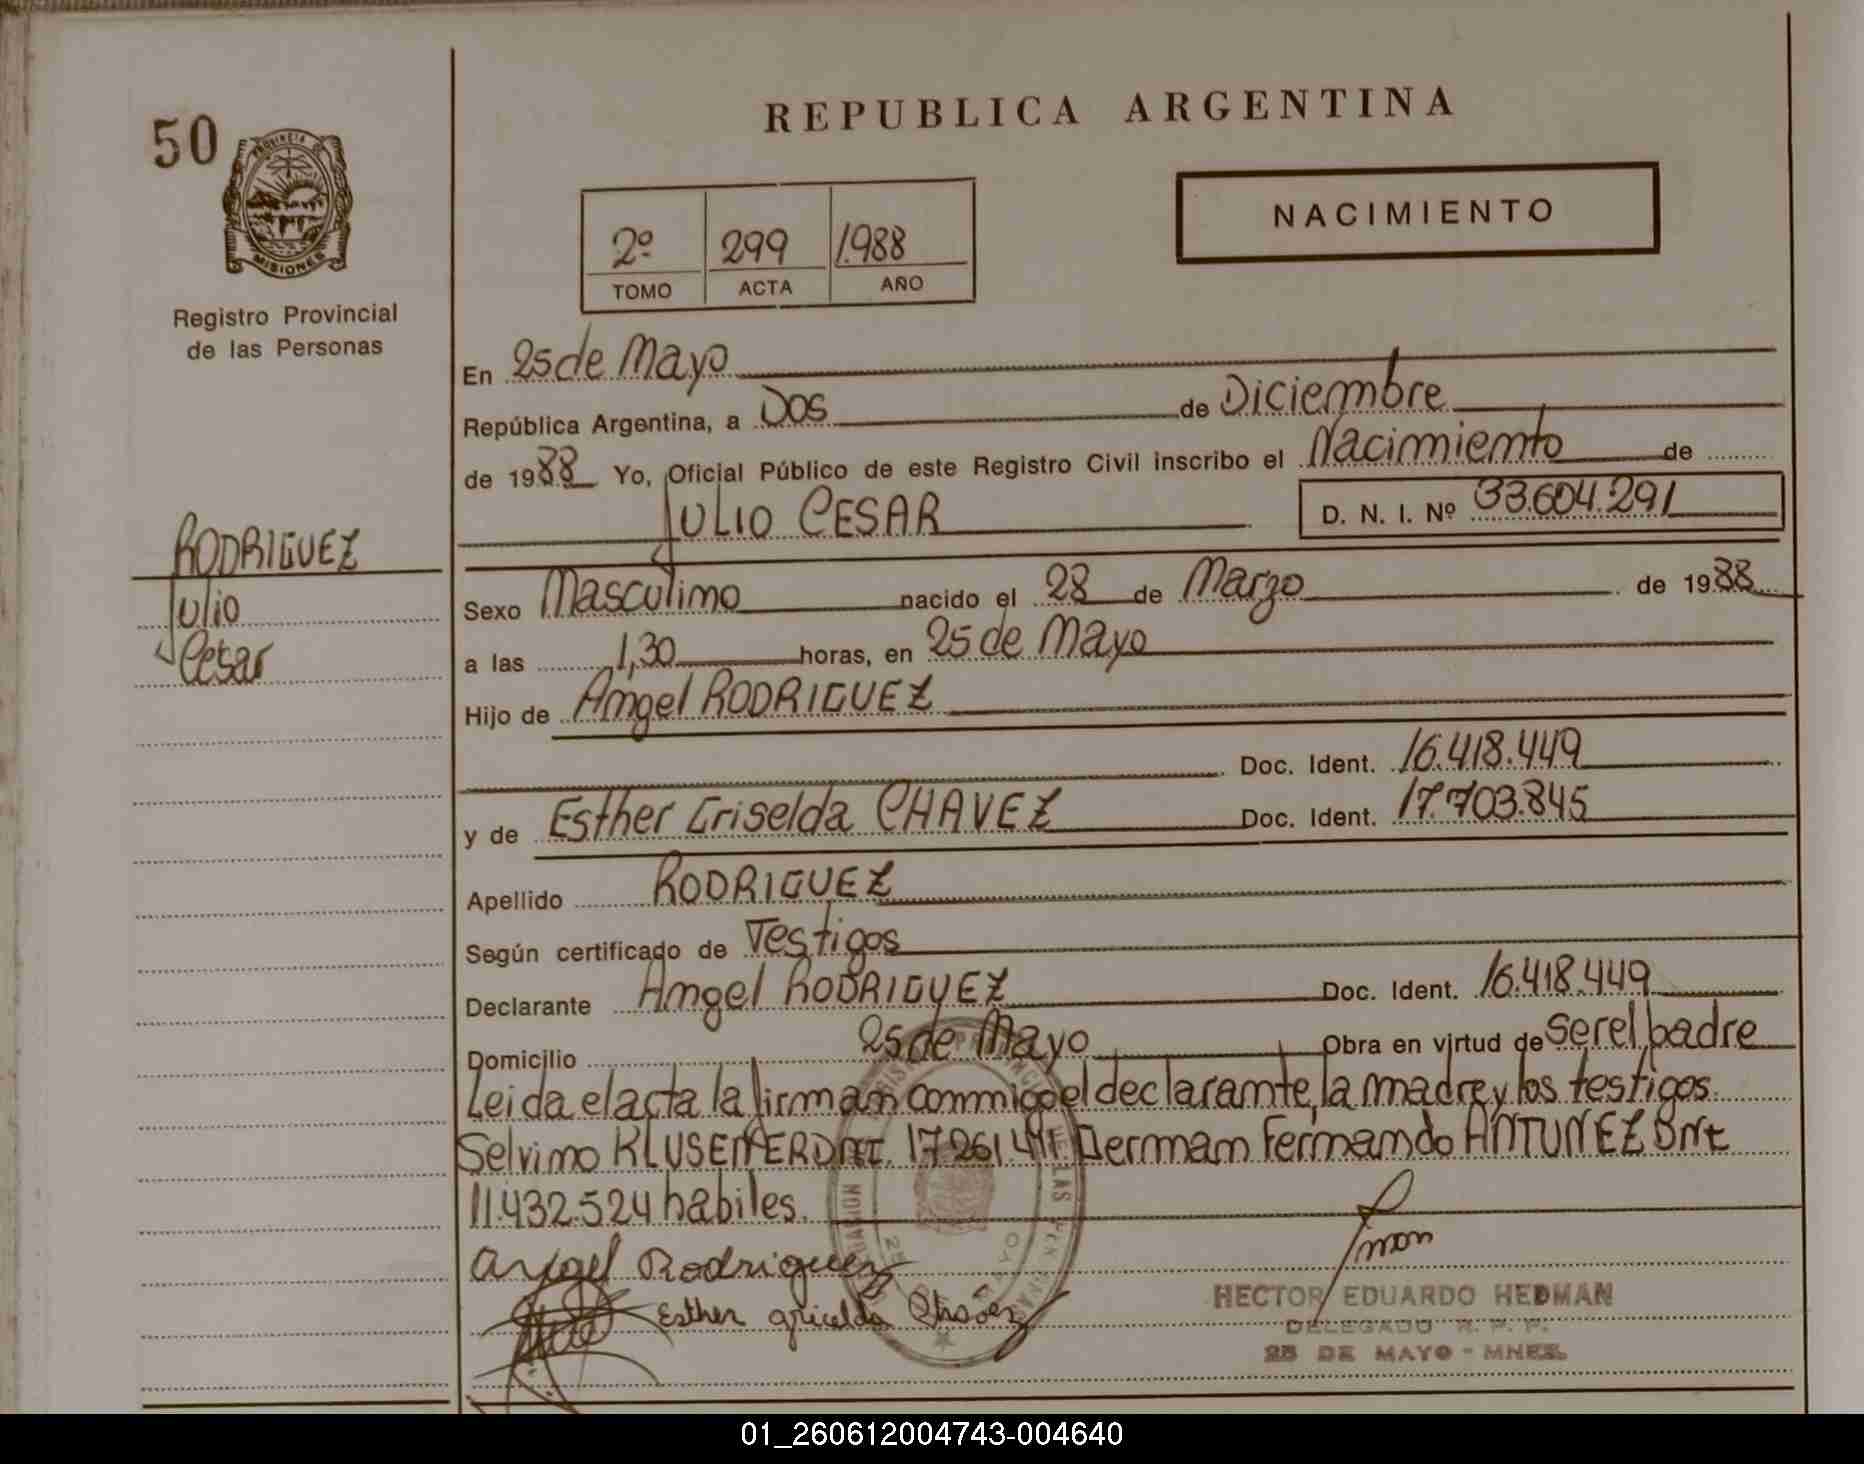 50
PROVINCIA DE
MISIONES
Registro Provincial
de las Personas
RODRIGUEZ
Julio
Cesar
REPUBLICA ARGENTINA
NACIMIENTO
2º 299 1.988
TOMO ACTA AÑO
En 25 de Mayo
República Argentina, a Dos de Diciembre
de 1988 Yo, Oficial Público de este Registro Civil inscribo el Nacimiento de
JULIO CESAR D. N. I. Nº 33.604.291
Sexo Masculino nacido el 28 de Marzo de 1988
a las 1,30 horas, en 25 de Mayo
Hijo de Angel RODRIGUEZ
Doc. Ident. 16.418.449
y de Esther Griselda CHAVEZ Doc. Ident. 17.703.845
Apellido RODRIGUEZ
Según certificado de Testigos
Declarante Angel RODRIGUEZ Doc. Ident. 16.418.449
Domicilio 25 de Mayo Obra en virtud de ser el padre
Leida el acta la firman conmigo el declarante, la madre y los testigos
Selvino 17.261.411. German Fernando ANTUNEZ DNI
11.432.524 habiles.
Angel Rodriguez
Esther gricelda Chávez
HECTOR EDUARDO HEDMAN
DELEGADO R. P. P.
25 DE MAYO - MNES.
01_260612004743-004640